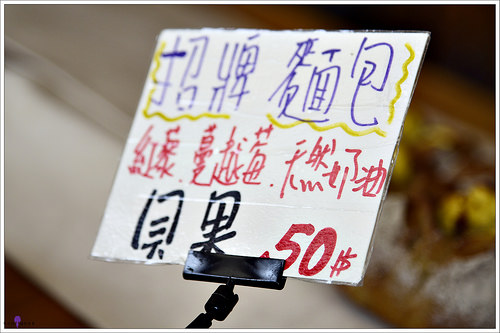 招牌 麵包
紅藜.蔓越莓.天然奶油
貝果 .50$